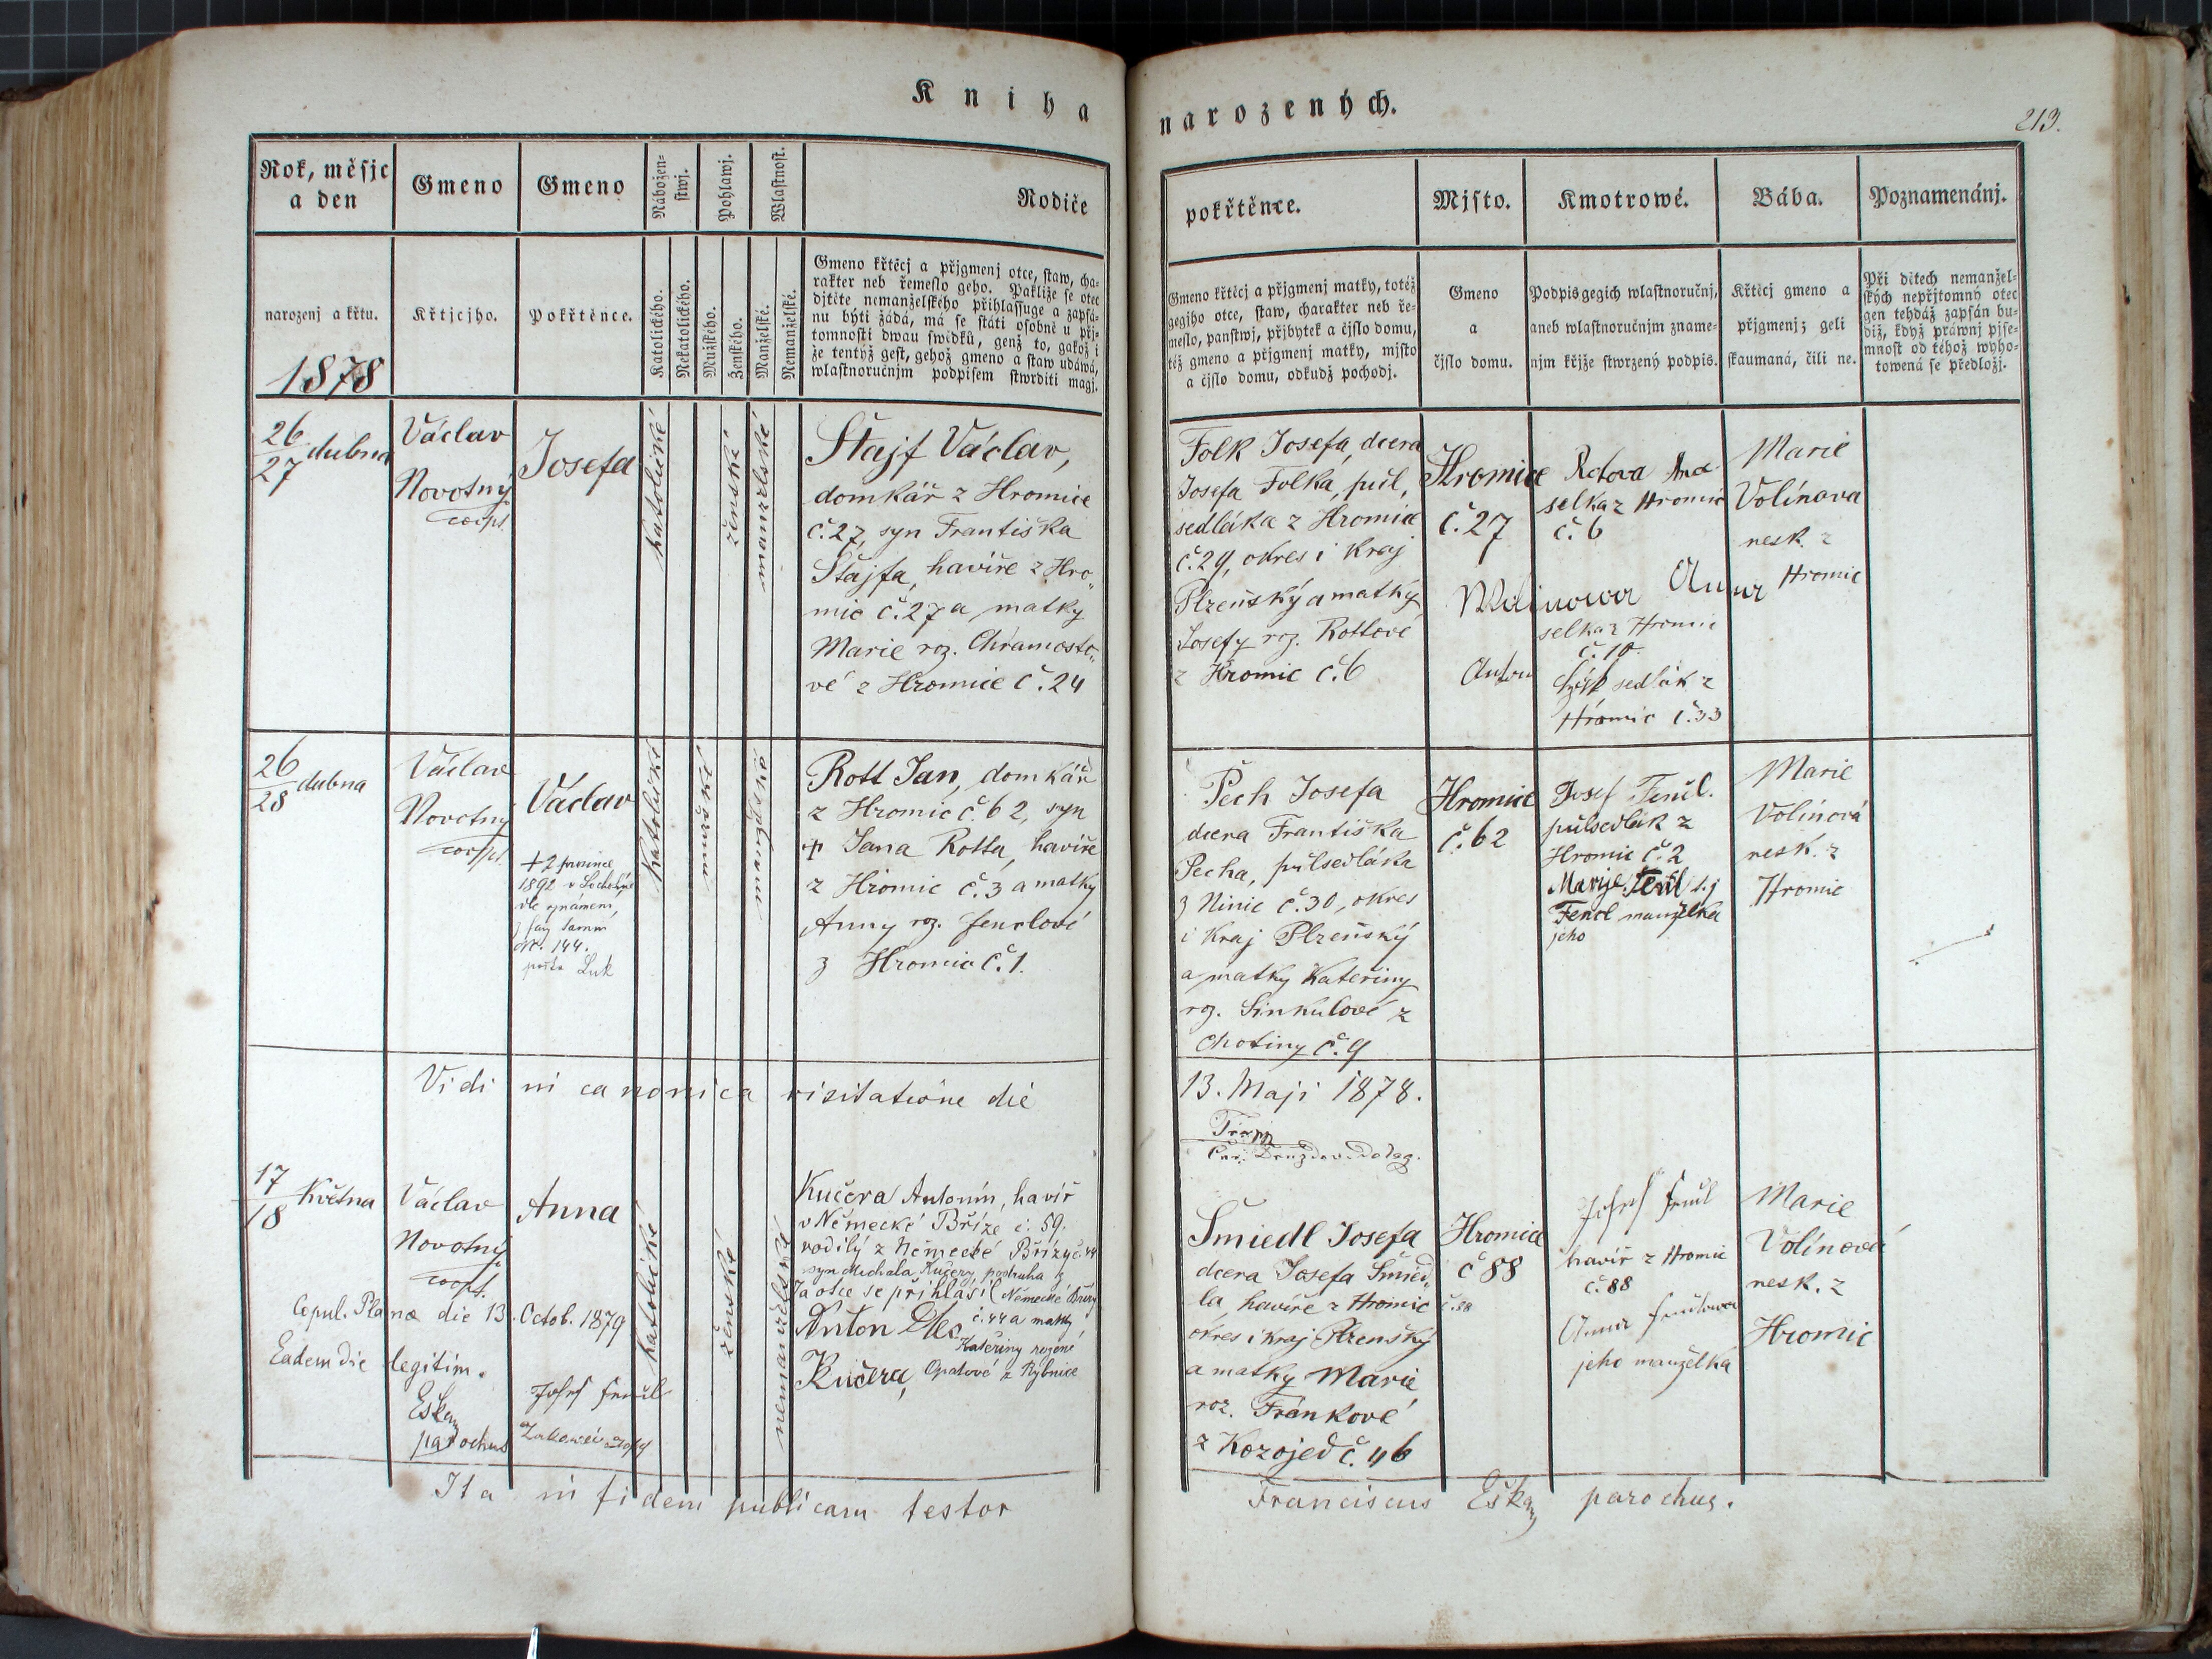 Kniha
narozených.
213.
Rok, měsjc
a den
Gmeno
Gmeno
Nábožen-
stwj.
Pohlawj.
Wlastnost.
Rodiče
pokřtěnce.
Mjsto.
Kmotrowé.
Bába.
Poznamenánj.
narozenj a křtu.
1878
Křtjcjho.
Pokřtěnce.
Katolického.
Nekatolického.
Mužského.
Ženského.
Manželské.
Nemanželské.
Gmeno křtěcj a přjgmenj otce, staw, cha-
rakter neb řemeslo geho. Pakliže se otec
djtěte nemanželského přihlassuge a zapsá-
nu býti žádá, má se státi osobně u přj-
tomnosti dwau swědků, genž to, gakož i
že tentýž gest, gehož gmeno a staw udáwá,
wlastnoručnjm podpisem stwrditi magj.
Gmeno křtěcj a přjgmenj matky, totéž
gegjho otce, staw, charakter neb ře-
meslo, panstwj, přjbytek a čjslo domu,
též gmeno a přjgmenj matky, mjsto
a čjslo domu, odkudž pochodj.
Gmeno
a
čjslo domu.
Podpis gegich wlastnoručnj,
aneb wlastnoručnjm zname-
njm křjže stwrzený podpis.
Křtěcj gmeno a
přjgmenj; geli
skaumaná, čili ne.
Při dětech nemanžel-
ských nepřjtomný otec
gen tehdáž zapsán bu-
diž, když práwnj pjse-
mnost od téhož wyho-
towená se předložj.
26
27 dubna
Václav
Novotný
coop.
Josefa
katolické
ženské
manželské
Štajf Václav,
domkář z Hromice
č. 27, syn Františka
Štajfa, havíře z Hro„
mic č. 27 a matky
Marie roz. Chramosto„
vé z Hromice č. 24
Folk Josefa, dcera
Josefa Folka, půl,
sedláka z Hromic
č. 29, okres i kraj
Plzeňský a matky
Josefy roz. Rottové
z Hromic č. 6
Hromice
č. 27
selka z Hromic
č. 6
Anna
selka z Hromic
č. 10.
Anton
sedlák z
Hromic č. 33
Marie
Volínova
nesk. z
Hromic
26
28 dubna
Václav
Novotný
coop.
Václav
+ 2 prosince
1892
č. 144.
katolické
mužské
manželské
Rott Jan, domkář
z Hromic č. 62, syn
+ Jana Rotta, havíře
z Hromic č. 3 a matky
Anny roz. Fenclové
z Hromic č. 1.
Pech Josefa
dcera Františka
Pecha, půlsedláka
z Ninic č. 30, okres
i kraj Plzeňský
a matky Kateřiny
roz. Sinkulové z
Chotiny č. 9
Hromice
č. 62
Josef Fencl.
půlsedlák z
Hromic č. 2
Marije Fencl t. j
Fencl manželka
jeho
Marie
Volínová
nesk. z
Hromic
Vidi in canonica visitatione die
13. Maji 1878.
17
18 Května
Václav
Novotný
coop.
Anna
katolické
ženské
nemanželské
Kučera Antonín, havíř
v Německé Bříze č. 59.
rodilý z Německé Břízy č. 44
syn Michala Kučery podruha z
Za otce se přihlásil Německé Břízy
č. 44 a matky
Anton
Kateřiny rozené
Kučera, Opatové z Rybnice
Copul. Planæ die 13. Octob. 1879
Eadem die legitim.
Eškan
parochus
Josef Fencl
Šmiedl Josefa
dcera Josefa Šmied„
la, havíře z Hromic č. 88
okres i kraj Plzeňský
a matky Marie
roz. Fránkové
z Kozojed č. 46
Hromice
č 88
Josef Fencl
havíř z Hromic
č. 88
Anna Fenclowa
jeho manželka
Marie
Volínová
nesk. z
Hromic
Ita in fidem publicam testor
Franciscus Eškan parochus.